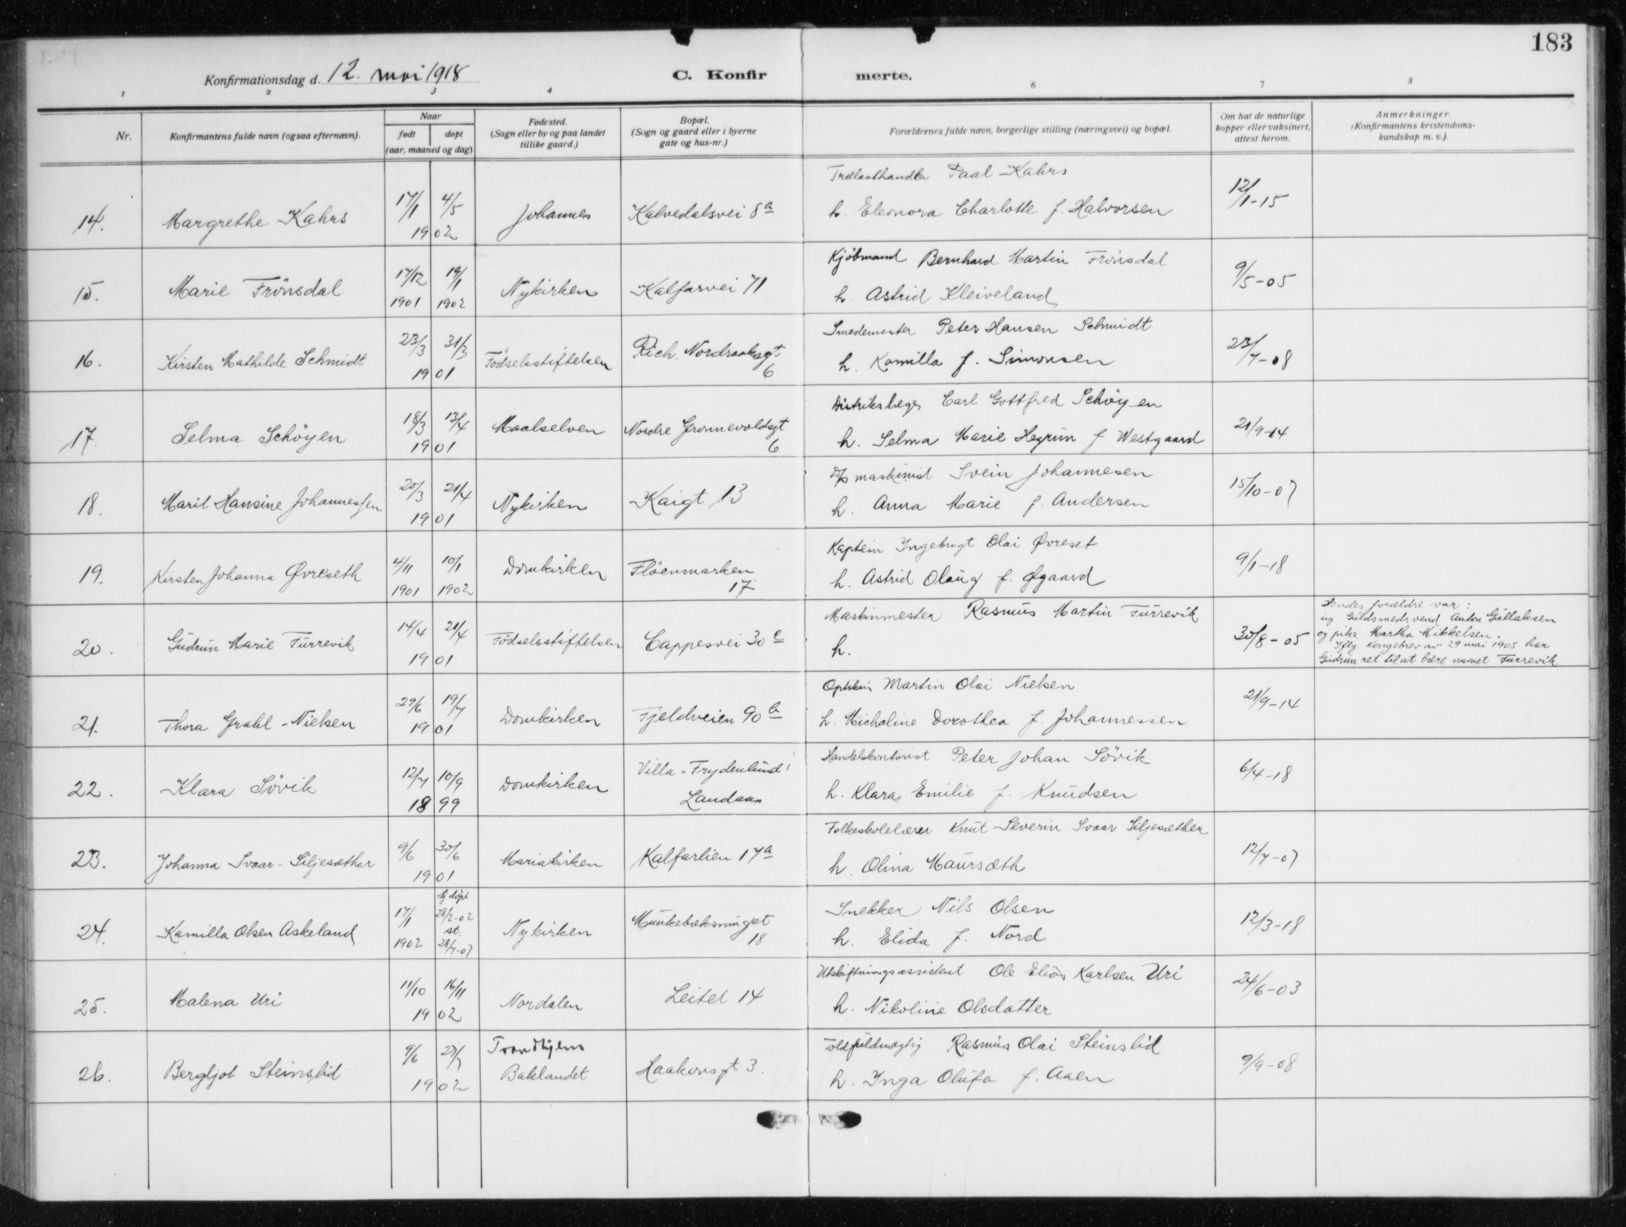 183
Konfirmationsdag d. 12. mai 1918
C. Konfirmerte.
1 2 3 4 6 7 8
Nr.
Konfirmantens fulde navn (ogsaa efternavn).
Naar
født døpt
(aar, maaned og dag)
Fødested.
(Sogn eller by og paa landet
tillike gaard.)
Bopæl.
(Sogn og gaard eller i byerne
gate og hus-nr.)
Forældrenes fulde navn, borgerlige stilling (næringsvei) og bopæl.
Om hat de naturlige
kopper eller vaksinert,
attest herom.
Anmerkninger.
(Konfirmantens kristendoms-
kundskap m. v.).
Trælasthandler Paal Kahrs
14. Margrethe Kahrs 17/1 4/5 1902 Johannes Kalvedalsvei 8a h. Eleonora Charlotte f. Halvorsen 12/1-15
Kjøbmand Bernhard Martin Frønsdal
15. Marie Frønsdal 17/12 1901 19/1 1902 Nykirken Kalfarvei 71 h. Astrid Kleiveland 9/5-05
Smedemester Peter Hansen Schmidt
16. Kirsten Mathilde Schmidt 23/3 31/3 1901 Fødselsstiftelsen Rich. Nordraaksgt 6 h. Kamilla f. Simonsen 23/7-08
Distriktslæge Carl Gottfred Schøyen
17. Selma Schøyen 18/3 13/4 1901 Maalselven Nordre Grønnevoldsgt 6 h. Selma Marie Hegrim f Westgaard 21/9-14
D/s maskinist Svein Johannesen
18. Marit Hansine Johannessen 20/3 21/4 1901 Nykirken Kaigt 13 h. Anna Marie f. Andersen 15/10-07
Kaptein Ingebrigt Olai Øvreset
19. Kirsten Johanna Øvreseth 4/11 1901 10/1 1902 Domkirken Fløenmarken 17 h. Astrid Olaug f. Øgaard 9/1-18
Maskinmester Rasmus Martin Furrevik
20. Gudrun Marie Furrevik 14/4 21/4 1901 Fødselsstiftelsen Cappesvei 30c h. 30/8-05
Hendes forældre var:
ug Guldsmedsvend Anton Gullaksen
og pike Martha Mikkelsen.
Iflg. Kongebrev av 29 mai 1905 har
Gudrun ret til at bære navnet Furrevik
Optikus Martin Olai Nielsen
21. Thora Grahl-Nielsen 29/6 19/7 1901 Domkirken Fjeldveien 90b h. Micholine Dorothea f. Johannessen 21/9-14
Handelskontorist Peter Johan Søvik
22. Klara Søvik 12/7 10/9 1899 Domkirken Villa "Frydenlund" Landaas h. Klara Emilie f. Knudsen 6/4-18
Folkeskolelærer Knut Severin Svaar Siljesæther
23. Johanna Svaar-Siljesæther 9/6 30/6 1901 Mariakirken Kalfarlien 17a h. Olina Maursæth 12/7-07
Snekker Nils Olsen
24. Kamilla Olsen Askeland 17/1 1902 Hj døpt 28/2-02 st. 28/7-07 Nykirken Munkebæksmuget 18 h. Elida f. Nord 12/3-18
Utskiftningsassistent Ole Elias Karlsen Uri
25. Malena Uri 11/10 16/11 1902 Nordalen Leitet 14 h. Nikoline Olsdatter 24/6-03
Toldfuldmægtig Rasmus Olai Steinslid
26. Bergljot Steinslid 9/6 27/7 1902 Trondhjem Baklandet Haakonsgt 3. h. Inga Olufa f. Aaen 9/9-08